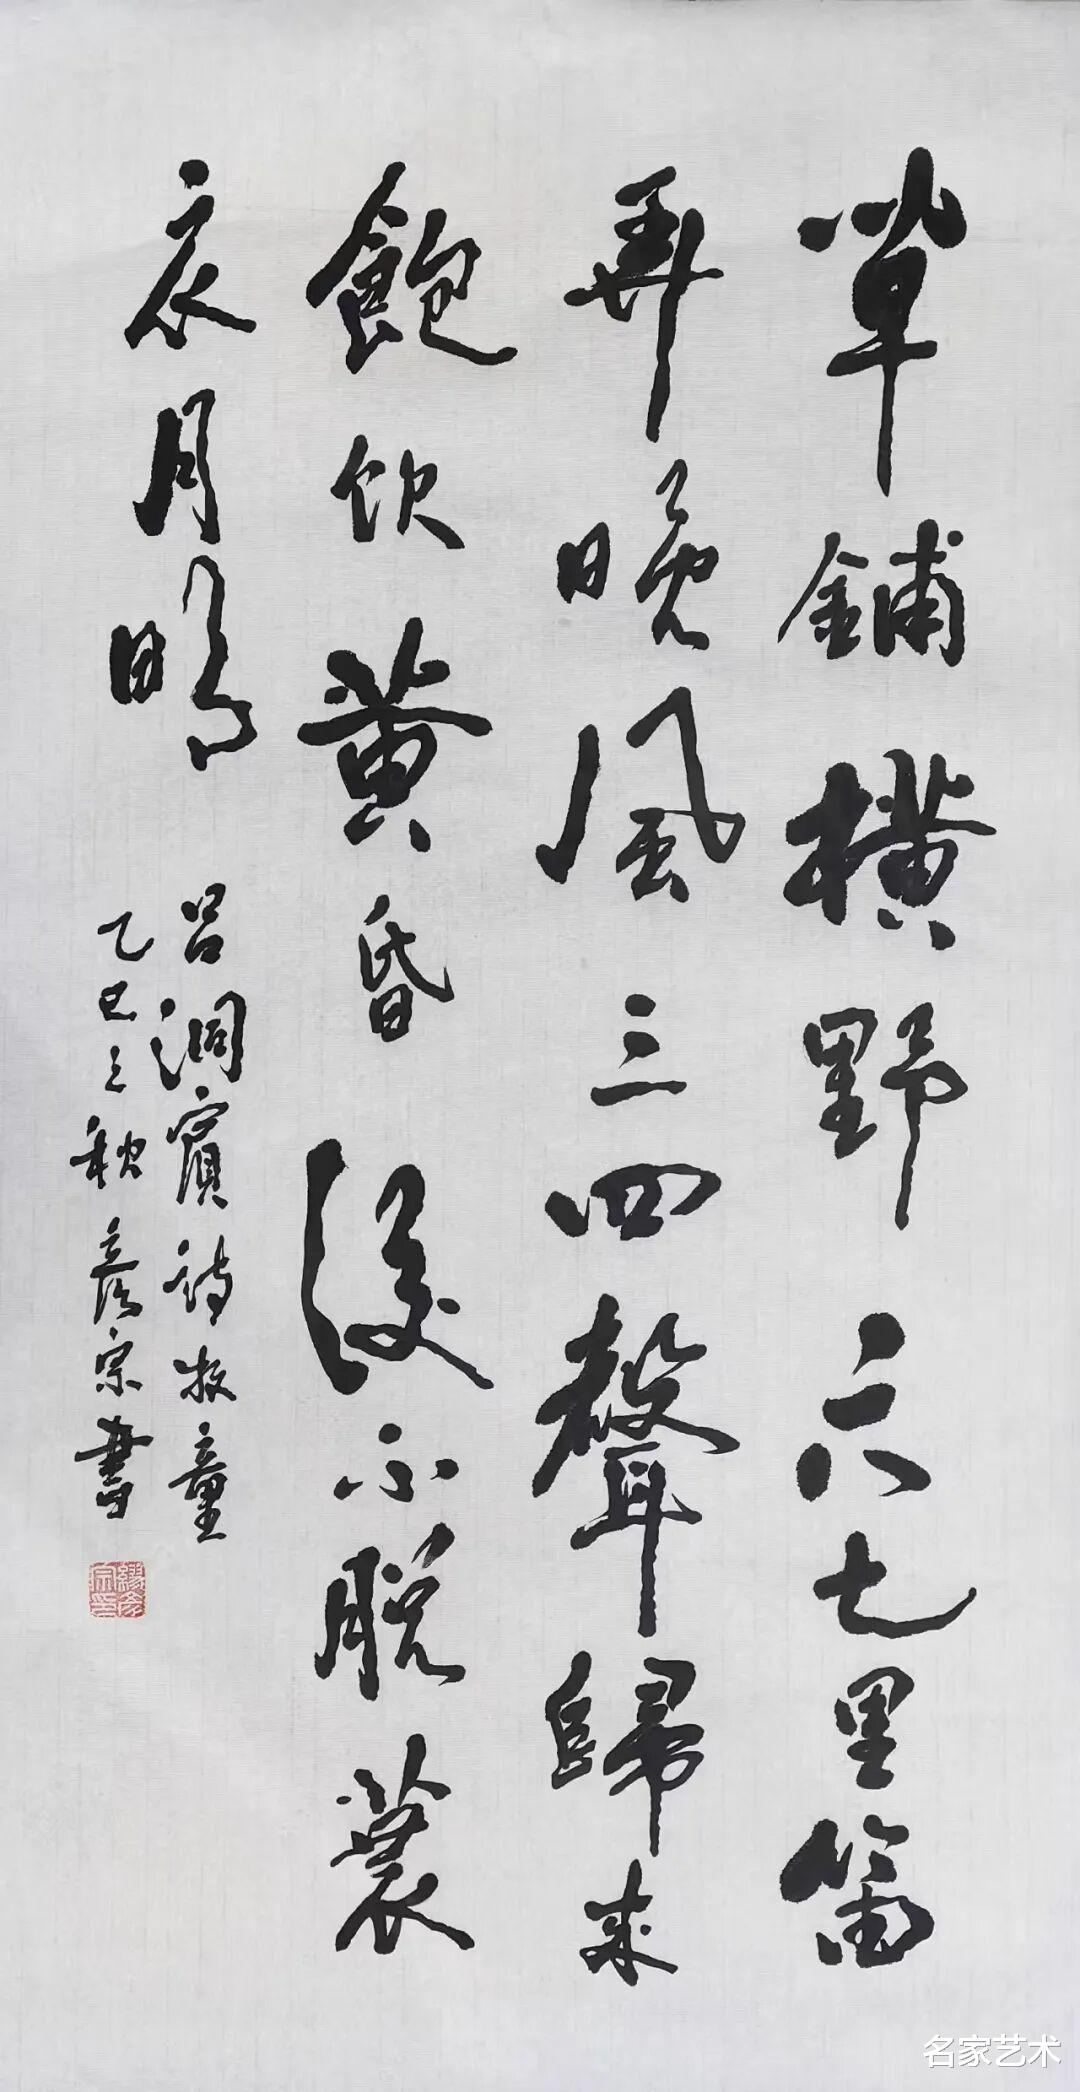 草鋪橫野六七里笛
弄晚風三四聲歸來
飽飲黄昏後不脱蓑
衣月明
吕洞賓詩牧童
乙巳之秋彦宗書
繆彦宗印
名家艺术